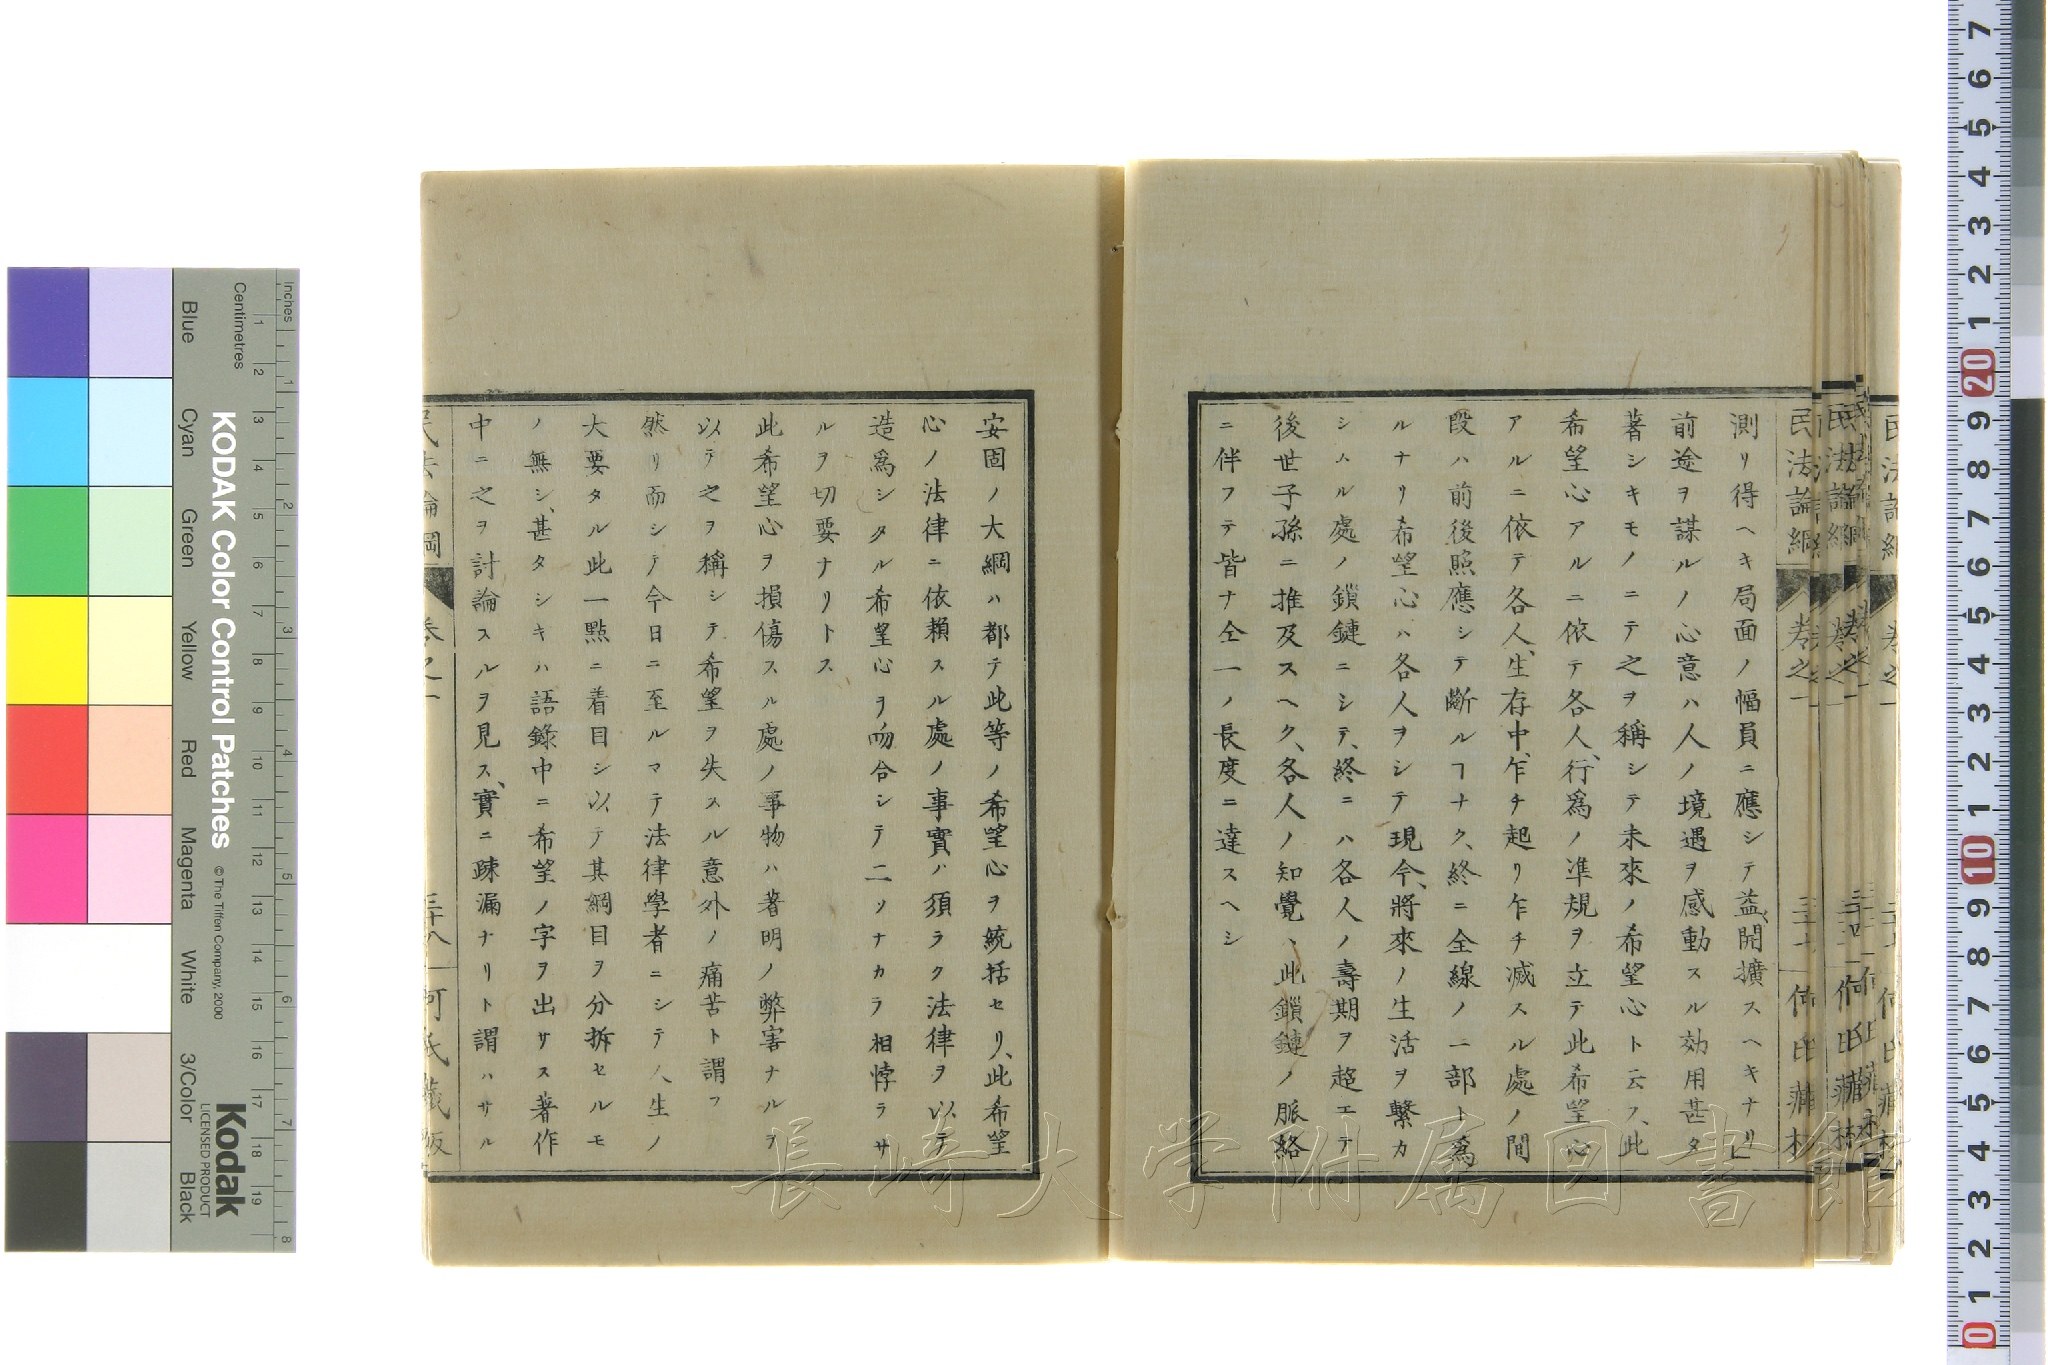 測リ得ヘキ局面ノ幅員ニ應シテ益開擴スヘキナリ
前途ヲ謀ルノ心意ハ人ノ境遇ヲ感動スル効用甚タ
著シキモノニテ之ヲ稱シテ未來ノ希望心ト云フ、此
希望心アルニ依テ各人、行爲ノ準規ヲ立テ此希望心
アルニ依テ各人、生存中、乍チ起リ乍チ滅スル處ノ間
段ハ前後照應シテ斷ルヿナク、終ニ全線ノ一部ト爲
ルナリ希望心ハ各人ヲシテ現今、將來ノ生活ヲ繫カ
シムル處ノ鎖鏈ニシテ、終ニハ各人ノ壽期ヲ超エテ
後世子孫ニ推及スヘク、各人ノ知覺ハ此鎖鏈ノ脈絡
ニ伴フテ皆ナ仝一ノ長度ニ達スヘシ
安固ノ大綱ハ都テ此等ノ希望心ヲ統括セリ、此希望
心ノ法律ニ依賴スル處ノ事實ハ須ラク法律ヲ以テ
造爲シタル希望心ヲ吻合シテ二ツナカラ相悖ラサ
ルヲ切要ナリトス
此希望心ヲ損傷スル處ノ事物ハ著明ノ弊害ナルヲ
以テ之ヲ稱シテ希望ヲ失スル意外ノ痛苦ト謂フ
然リ而シテ今日ニ至ルマテ法律學者ニシテ人生ノ
大要タル此一點ニ着目シ以テ其綱目ヲ分拆セルモ
ノ無シ、甚タシキハ語錄中ニ希望ノ字ヲ出サス著作
中ニ之ヲ討論スルヲ見ス、實ニ疎漏ナリト謂ハサル
民法論綱 卷之一 三十八 何氏藏版
民法論綱 卷之一 三十七 何氏藏板
長崎大学附属図書館
KODAK Color Control Patches
© The Tiffen Company, 2000
Kodak
LICENSED PRODUCT
Inches
Centimetres
Blue Cyan Green Yellow Red Magenta White 3/Color Black